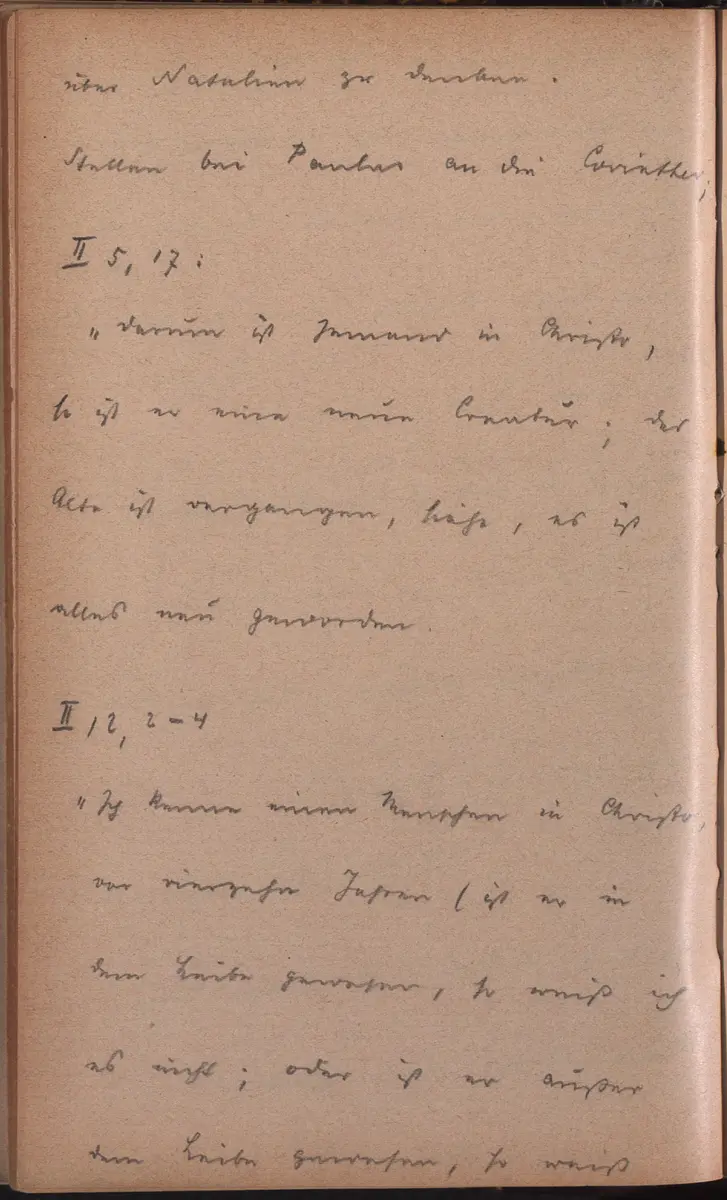 über Natalien zu denken.
Stellen bei Paulus an die Corinther;
II 5, 17:
„Darum ist Jemand in Christo,
so ist er eine neue Creatur; das
Alte ist vergangen, siehe, es ist
alles neu geworden.
II 12, 2–4
„Ich kenne einen Menschen in Christo,
vor vierzehn Jahren (ist er in
dem Leibe gewesen, so weiß ich
es nicht; oder ist er außer
dem Leibe gewesen, so weiß